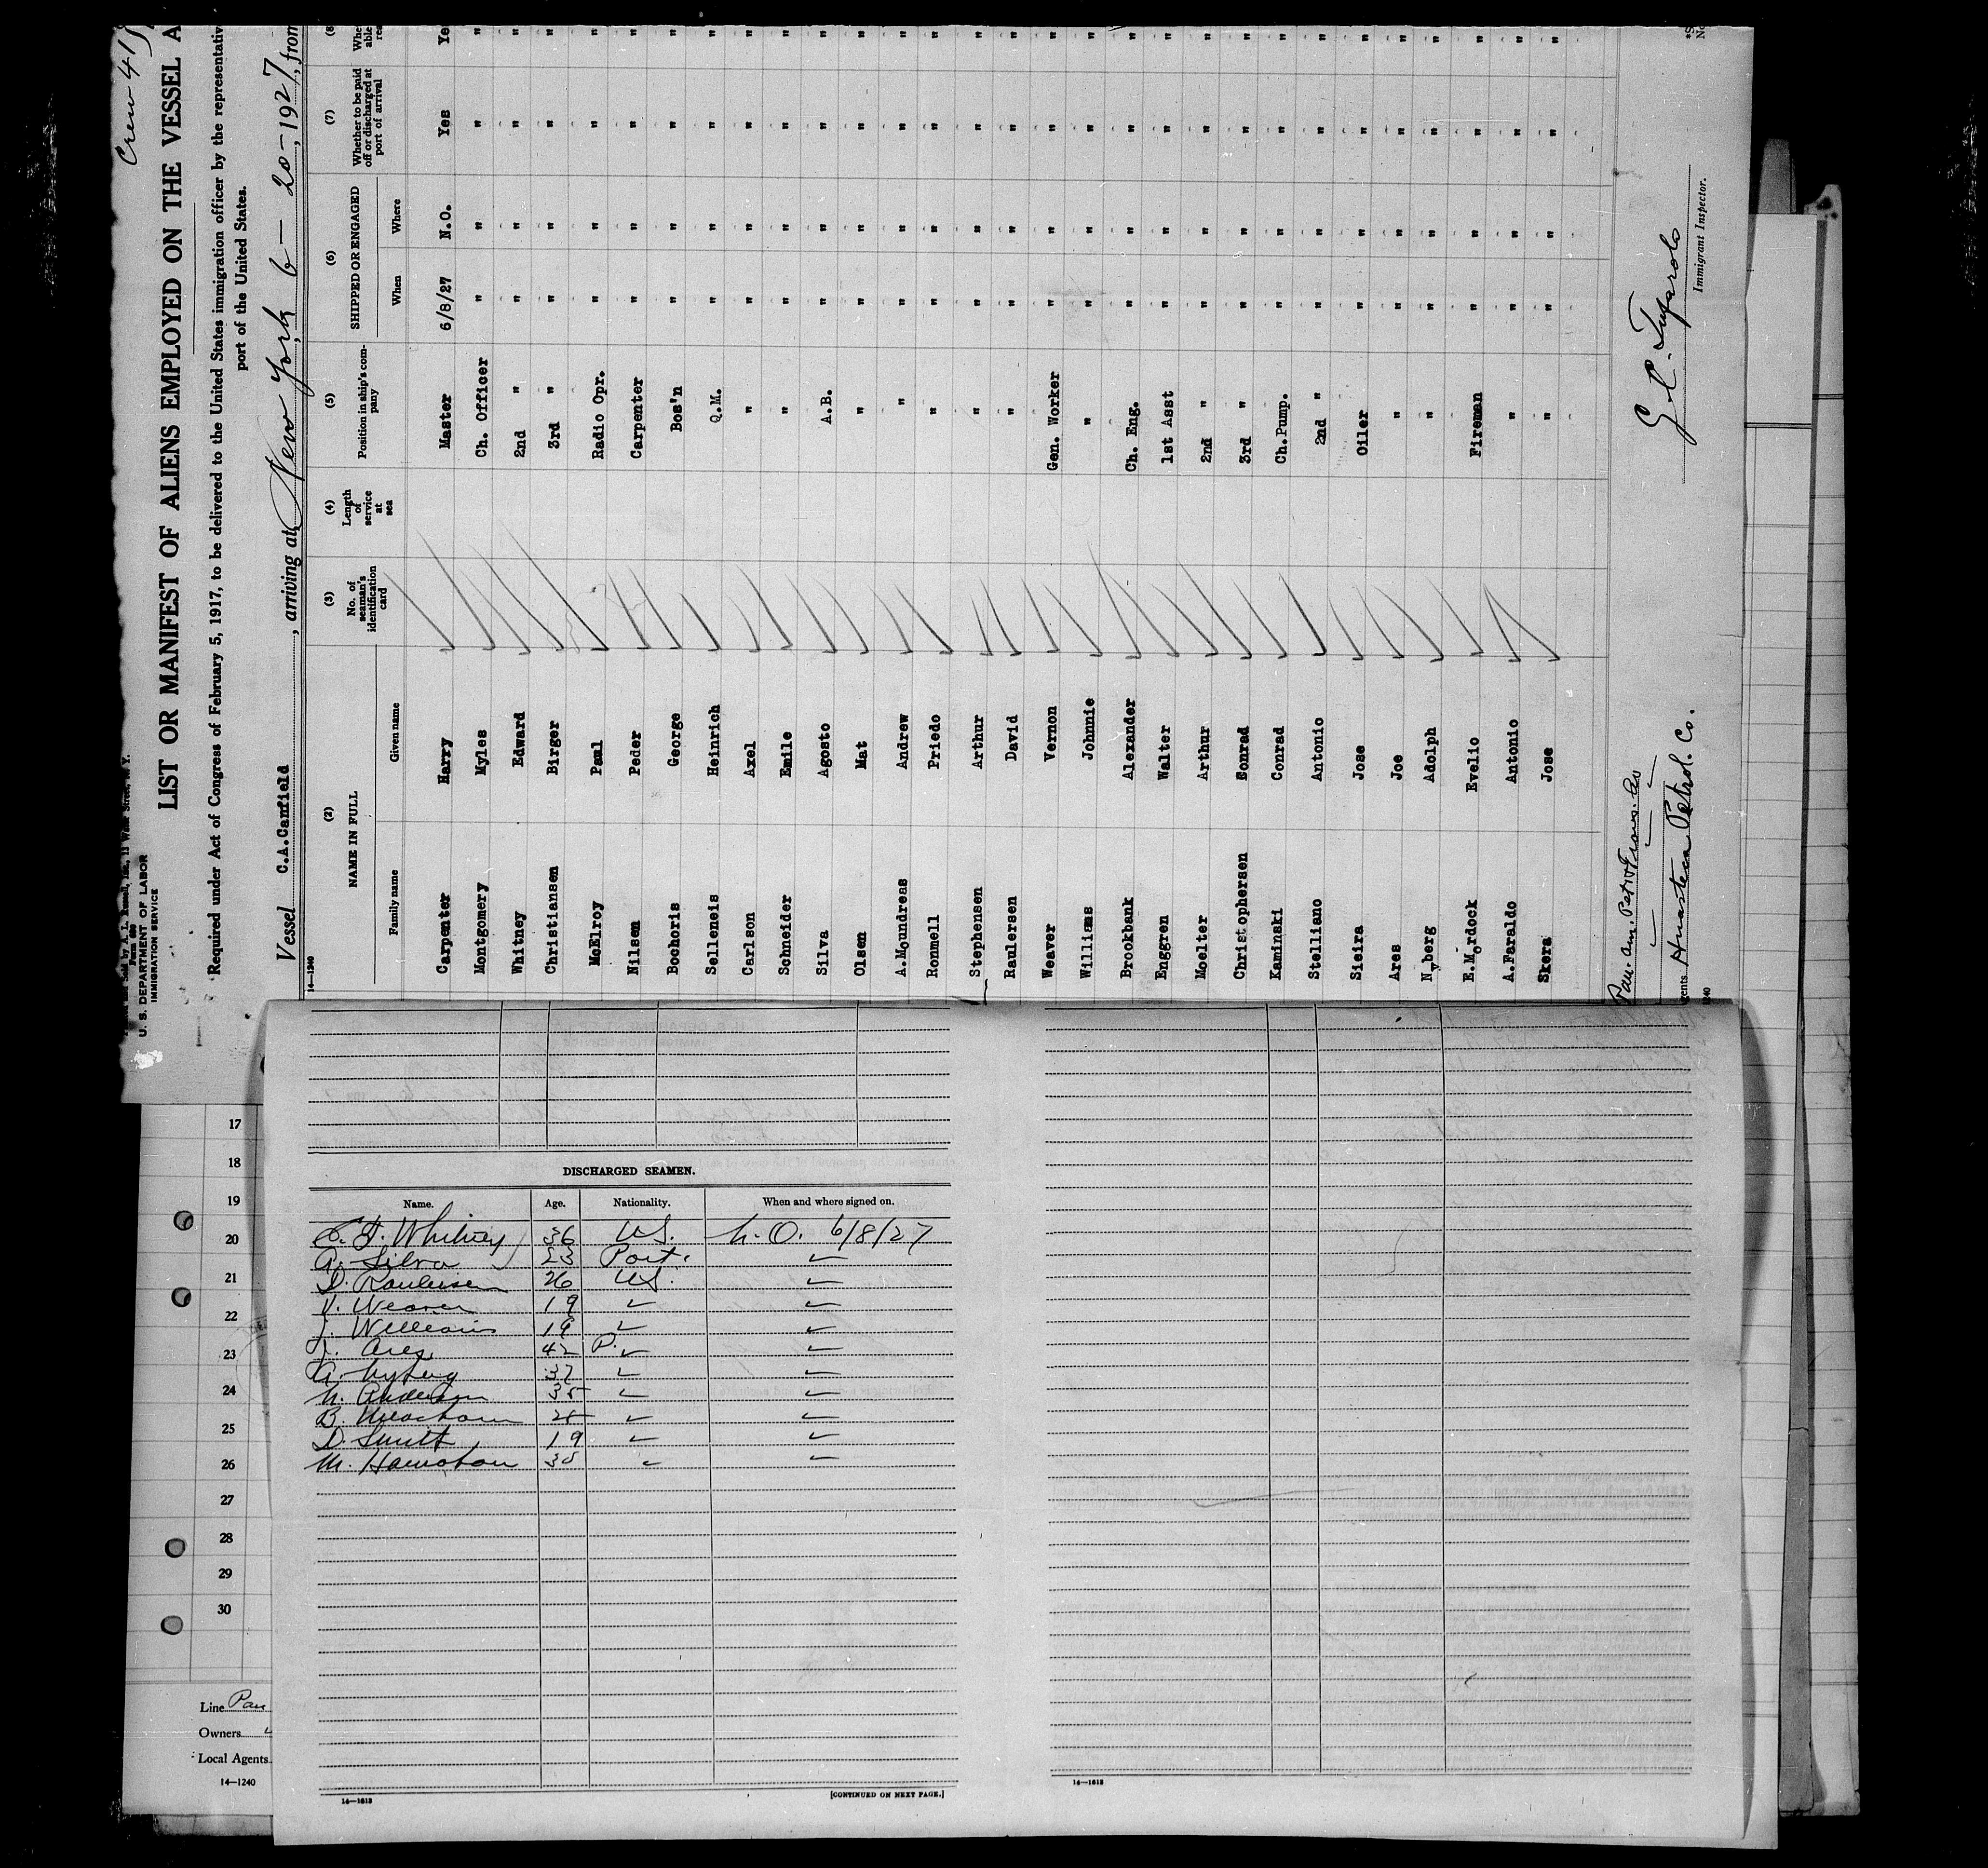 Crew 41
Form 680
U. S. DEPARTMENT OF LABOR
IMMIGRATION SERVICE
LIST OR MANIFEST OF ALIENS EMPLOYED ON THE VESSEL A
Required under Act of Congress of February 5, 1917, to be delivered to the United States immigration officer by the representativ
port of the United States.
Vessel C.A.Canfield, arriving at New York 6-20-, 1927, from
14-1240
(2) (3) (4) (5) (6) (7) (8
NAME IN FULL No. of seaman's identification card Length of service at sea Position in ship's company SHIPPED OR ENGAGED Whether to be paid off or discharged at port of arrival
Family name Given name When Where
Carpenter Harry Master 6/8/27 N.O. Yes Ye
Montgomery Myles Ch. Officer " " " "
Whitney Edward 2nd " " " " "
Christiansen Birger 3rd " " " " "
McElroy Paul Radio Opr. " " " "
Nilsen Peder Carpenter " " " "
Bochoris George Bos'n " " " "
Selleneis Heinrich Q.M. " " " "
Carlson Axel " " " " "
Schneider Emile " " " " "
Silva Agosto A.B. " " " "
Olsen Mat " " " " "
A.Moundreas Andrew " " " " "
Ronmell Priedo " " " " "
Stephensen Arthur " " " " "
Raulersen David " " " " "
Weaver Vernon Gen. Worker " " " "
Williams Johnnie " " " " "
Brookbank Alexander Ch. Eng. " " " "
Enggren Walter 1st Asst " " " "
Moelter Arthur 2nd " " " " "
Christophersen Conrad 3rd " " " " "
Kaminski Conrad Ch.Pump. " " " "
Stelliano Antonio 2nd " " " " "
Sieira Jose Oiler " " " "
Ares Joe " " " " "
Nyberg Adolph " " " " "
E.Mordock Evelio Fireman " " " "
A.Faraldo Antonio " " " " "
Skera Jose " " " " "
Pan. Am. Petro Trans. Co
gents Huasteca Petrol. Co.
1240
Immigrant Inspector.
17
18
19
20
21
22
23
24
25
26
27
28
29
30
Line Pan
Owners
Local Agents
14-1240
DISCHARGED SEAMEN.
Name. Age. Nationality. When and where signed on.
E. F. Whitney 36 US. N.O. 6/8/27
A. Silva 23 Port. ✓
D. Raulersen 26 US. ✓
V. Weaver 19 ✓ ✓
J. Williams 19 ✓ ✓
J. Ares 42 P. ✓ ✓
A. Nyberg 37 ✓ ✓
N. Anderson ✓ ✓
B. ✓ ✓
D. Smith 19 ✓ ✓
M. ✓ ✓
14-1613 [CONTINUED ON NEXT PAGE.]
14-1613